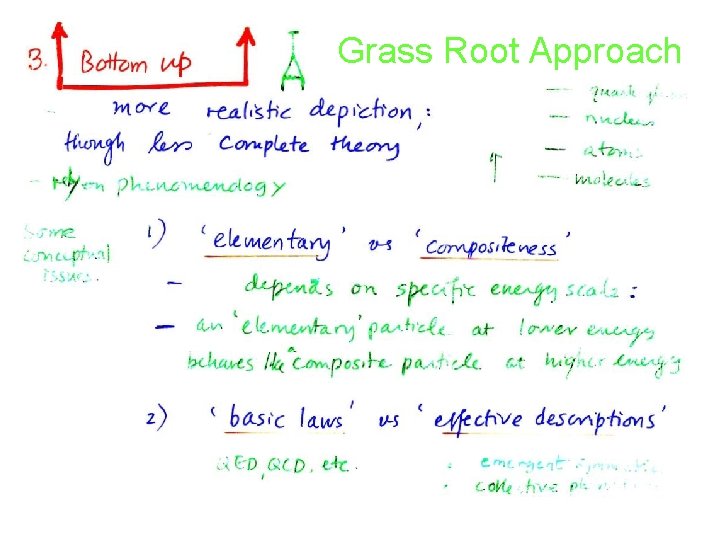 Grass Root Approach
3. Bottom up
more realistic depiction;
though less complete theory
- rely on phenomenology
— quark
— nucleus
— atoms
— molecules
Some
conceptual
issues.
1) 'elementary' vs 'compositeness'
- depends on specific energy scale:
- an 'elementary' particle at lower energy
behaves like a composite particle at higher energy
2) 'basic laws' vs 'effective descriptions'
QED, QCD, etc.
emergent
collective